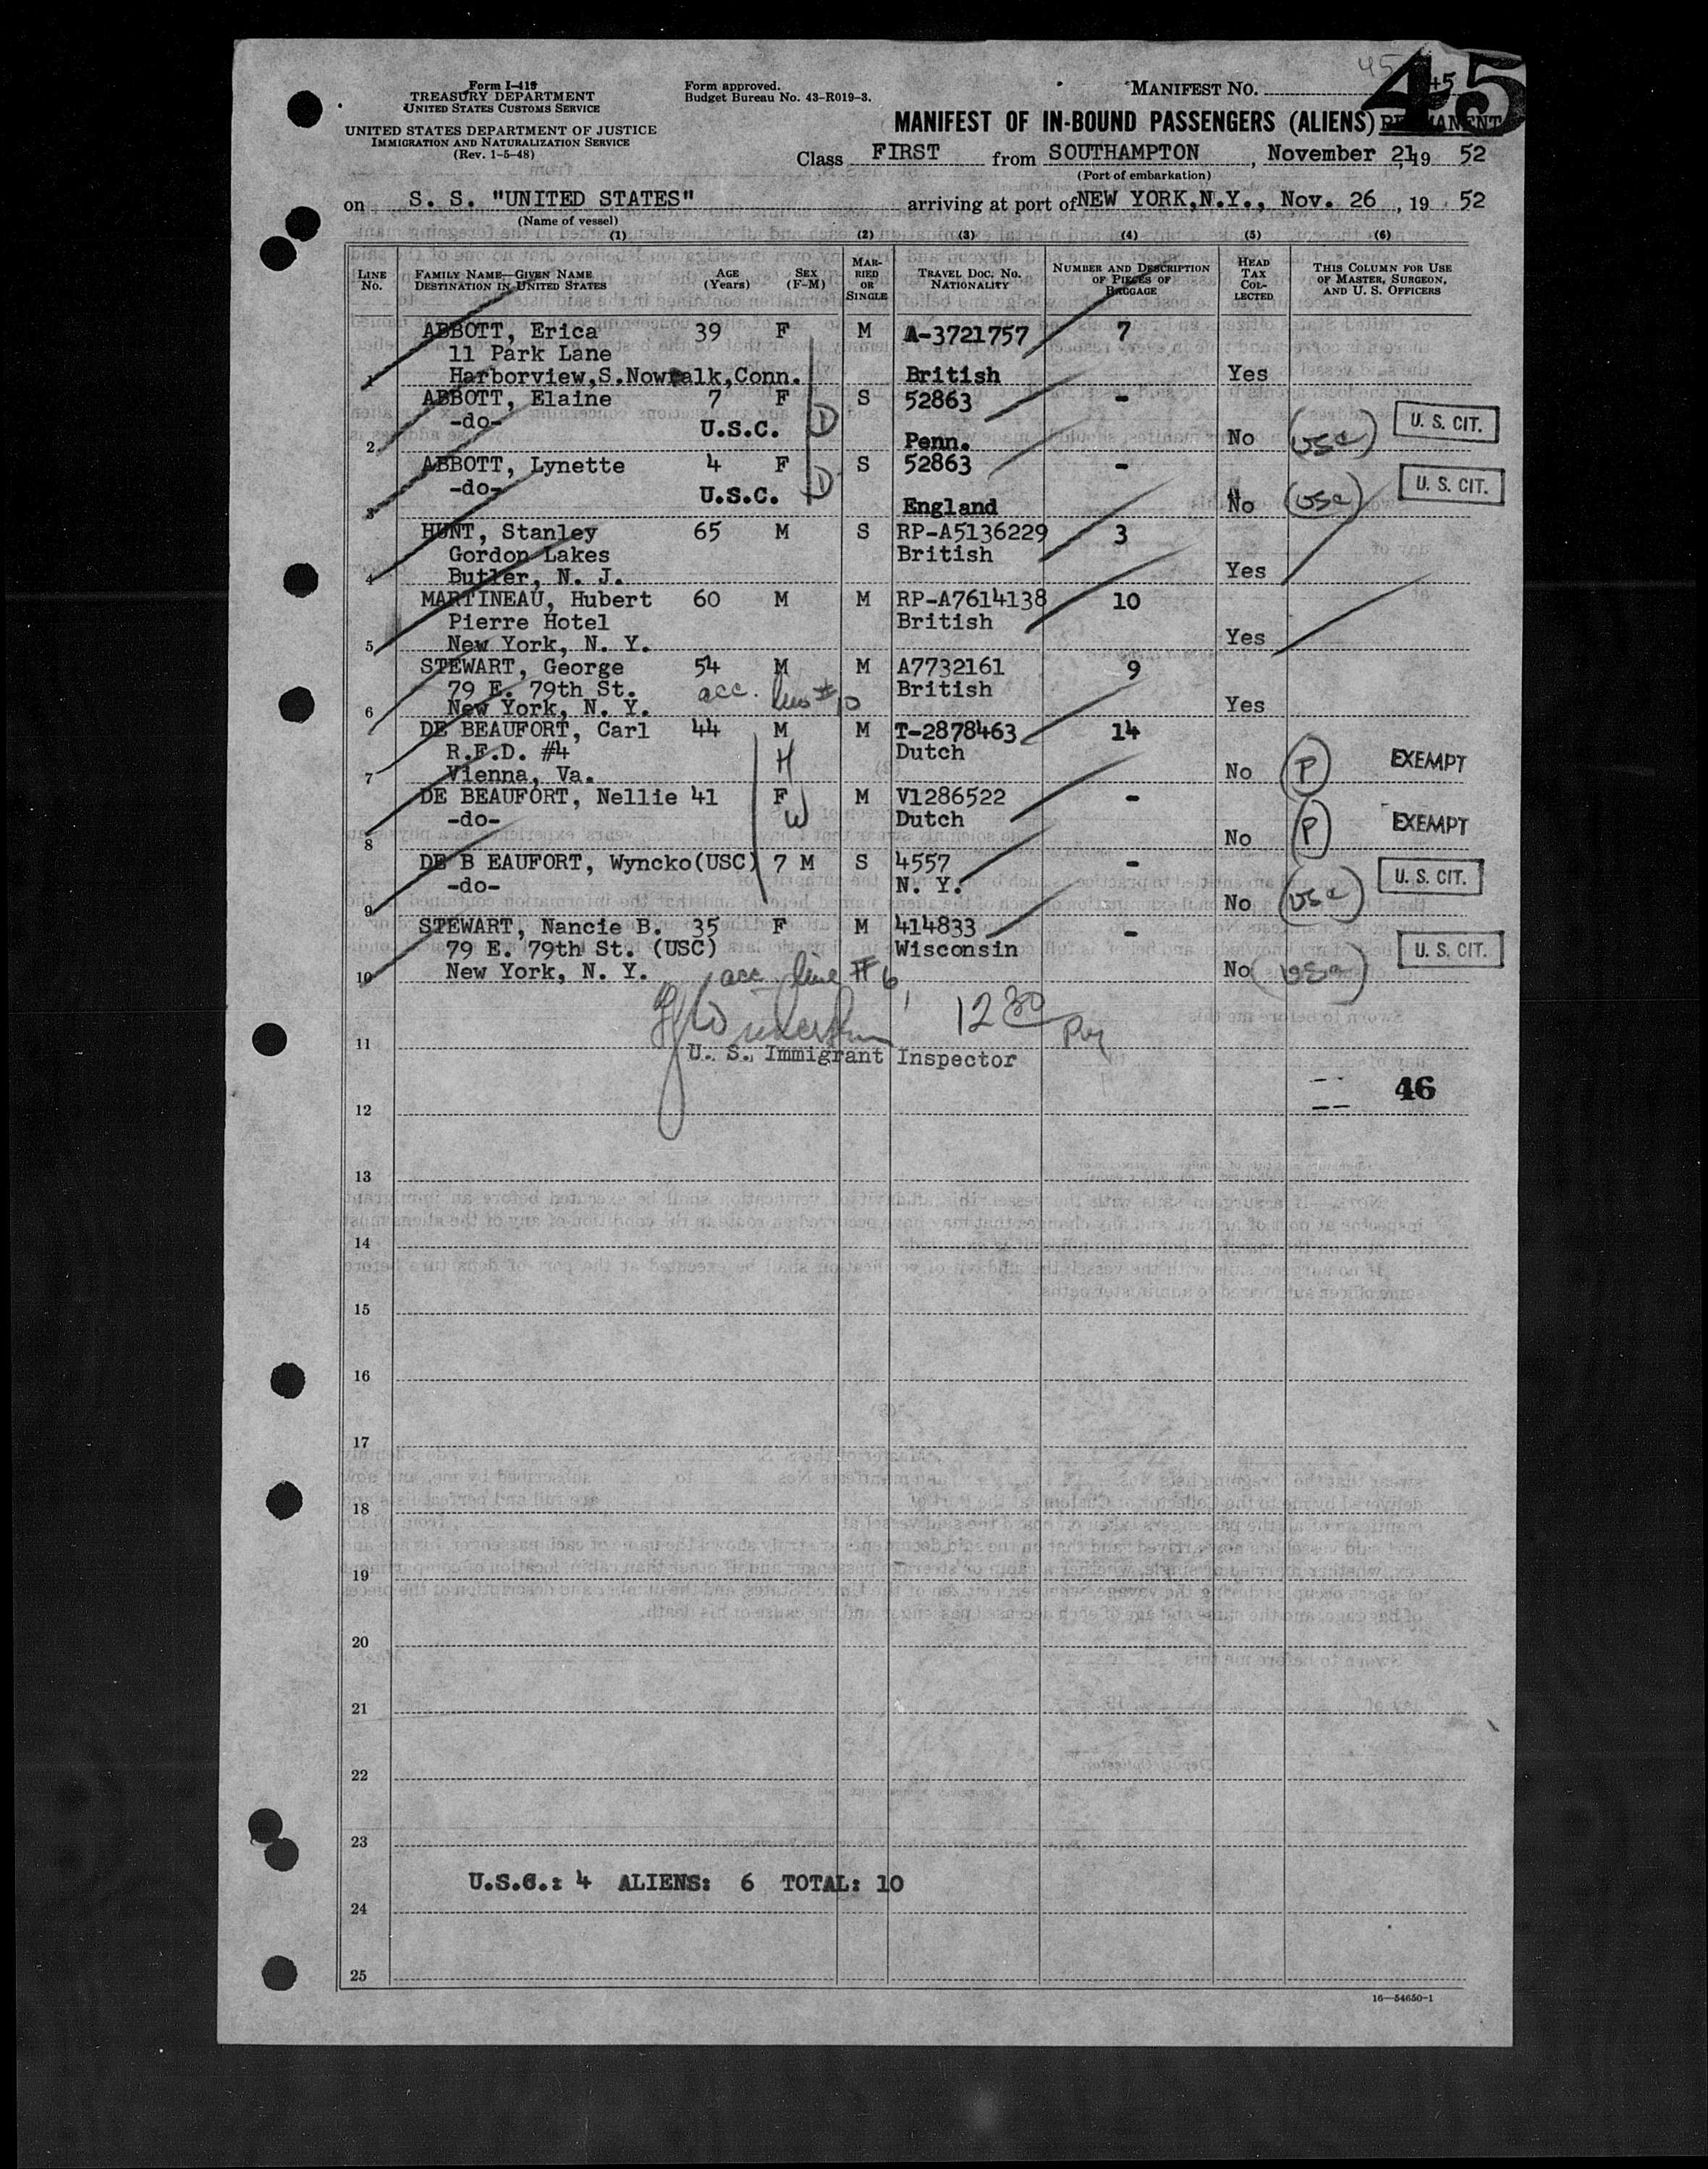 45
45
Form I-415
TREASURY DEPARTMENT
UNITED STATES CUSTOMS SERVICE
UNITED STATES DEPARTMENT OF JUSTICE
IMMIGRATION AND NATURALIZATION SERVICE
(Rev. 1-5-48)
Form approved.
Budget Bureau No. 43-R019-3.
MANIFEST NO. 45
MANIFEST OF IN-BOUND PASSENGERS (ALIENS) PERMANENT
Class FIRST from SOUTHAMPTON, November 21, 19 52
(Port of embarkation)
on S. S. "UNITED STATES" arriving at port of NEW YORK, N.Y., Nov. 26, 19 52
(Name of vessel)
(1) (2) (3) (4) (5) (6)
LINE NO. FAMILY NAME—GIVEN NAME DESTINATION IN UNITED STATES AGE (Years) SEX (F-M) MARRIED OR SINGLE TRAVEL DOC. NO. NATIONALITY NUMBER AND DESCRIPTION OF PIECES OF BAGGAGE HEAD TAX COLLECTED THIS COLUMN FOR USE OF MASTER, SURGEON, AND U. S. OFFICERS
ABBOTT, Erica 39 F M A-3721757 7
11 Park Lane
1 Harborview,S.Nowralk,Conn. British Yes
ABBOTT, Elaine 7 F S 52863 -
-do- U.S.C. D U. S. CIT.
2 Penn. No USC
ABBOTT, Lynette 4 F S 52863 -
-do- U.S.C. D U. S. CIT.
3 England No USC
HUNT, Stanley 65 M S RP-A5136229 3
Gordon Lakes British
4 Butler, N. J. Yes
MARTINEAU, Hubert 60 M M RP-A7614138 10
Pierre Hotel British
5 New York, N. Y. Yes
STEWART, George 54 M M A7732161 9
79 E. 79th St. acc. line #10 British
6 New York, N. Y. Yes
DE BEAUFORT, Carl 44 M M T-2878463 14
R.F.D. #4 H Dutch
7 Vienna, Va. No P EXEMPT
DE BEAUFORT, Nellie 41 F M V1286522 -
-do- W Dutch
8 No P EXEMPT
DE B EAUFORT, Wyncko(USC) 7 M S 4557 -
-do- N. Y. U. S. CIT.
9 No USC
STEWART, Nancie B. 35 F M 414833 -
79 E. 79th St. (USC) Wisconsin U. S. CIT.
10 New York, N. Y. acc line #6 No USC
12 30 PM
11 U. S. Immigrant Inspector
46
12
13
14
15
16
17
18
19
20
21
22
23
U.S.C.: 4 ALIENS: 6 TOTAL: 10
24
25
16—54650-1